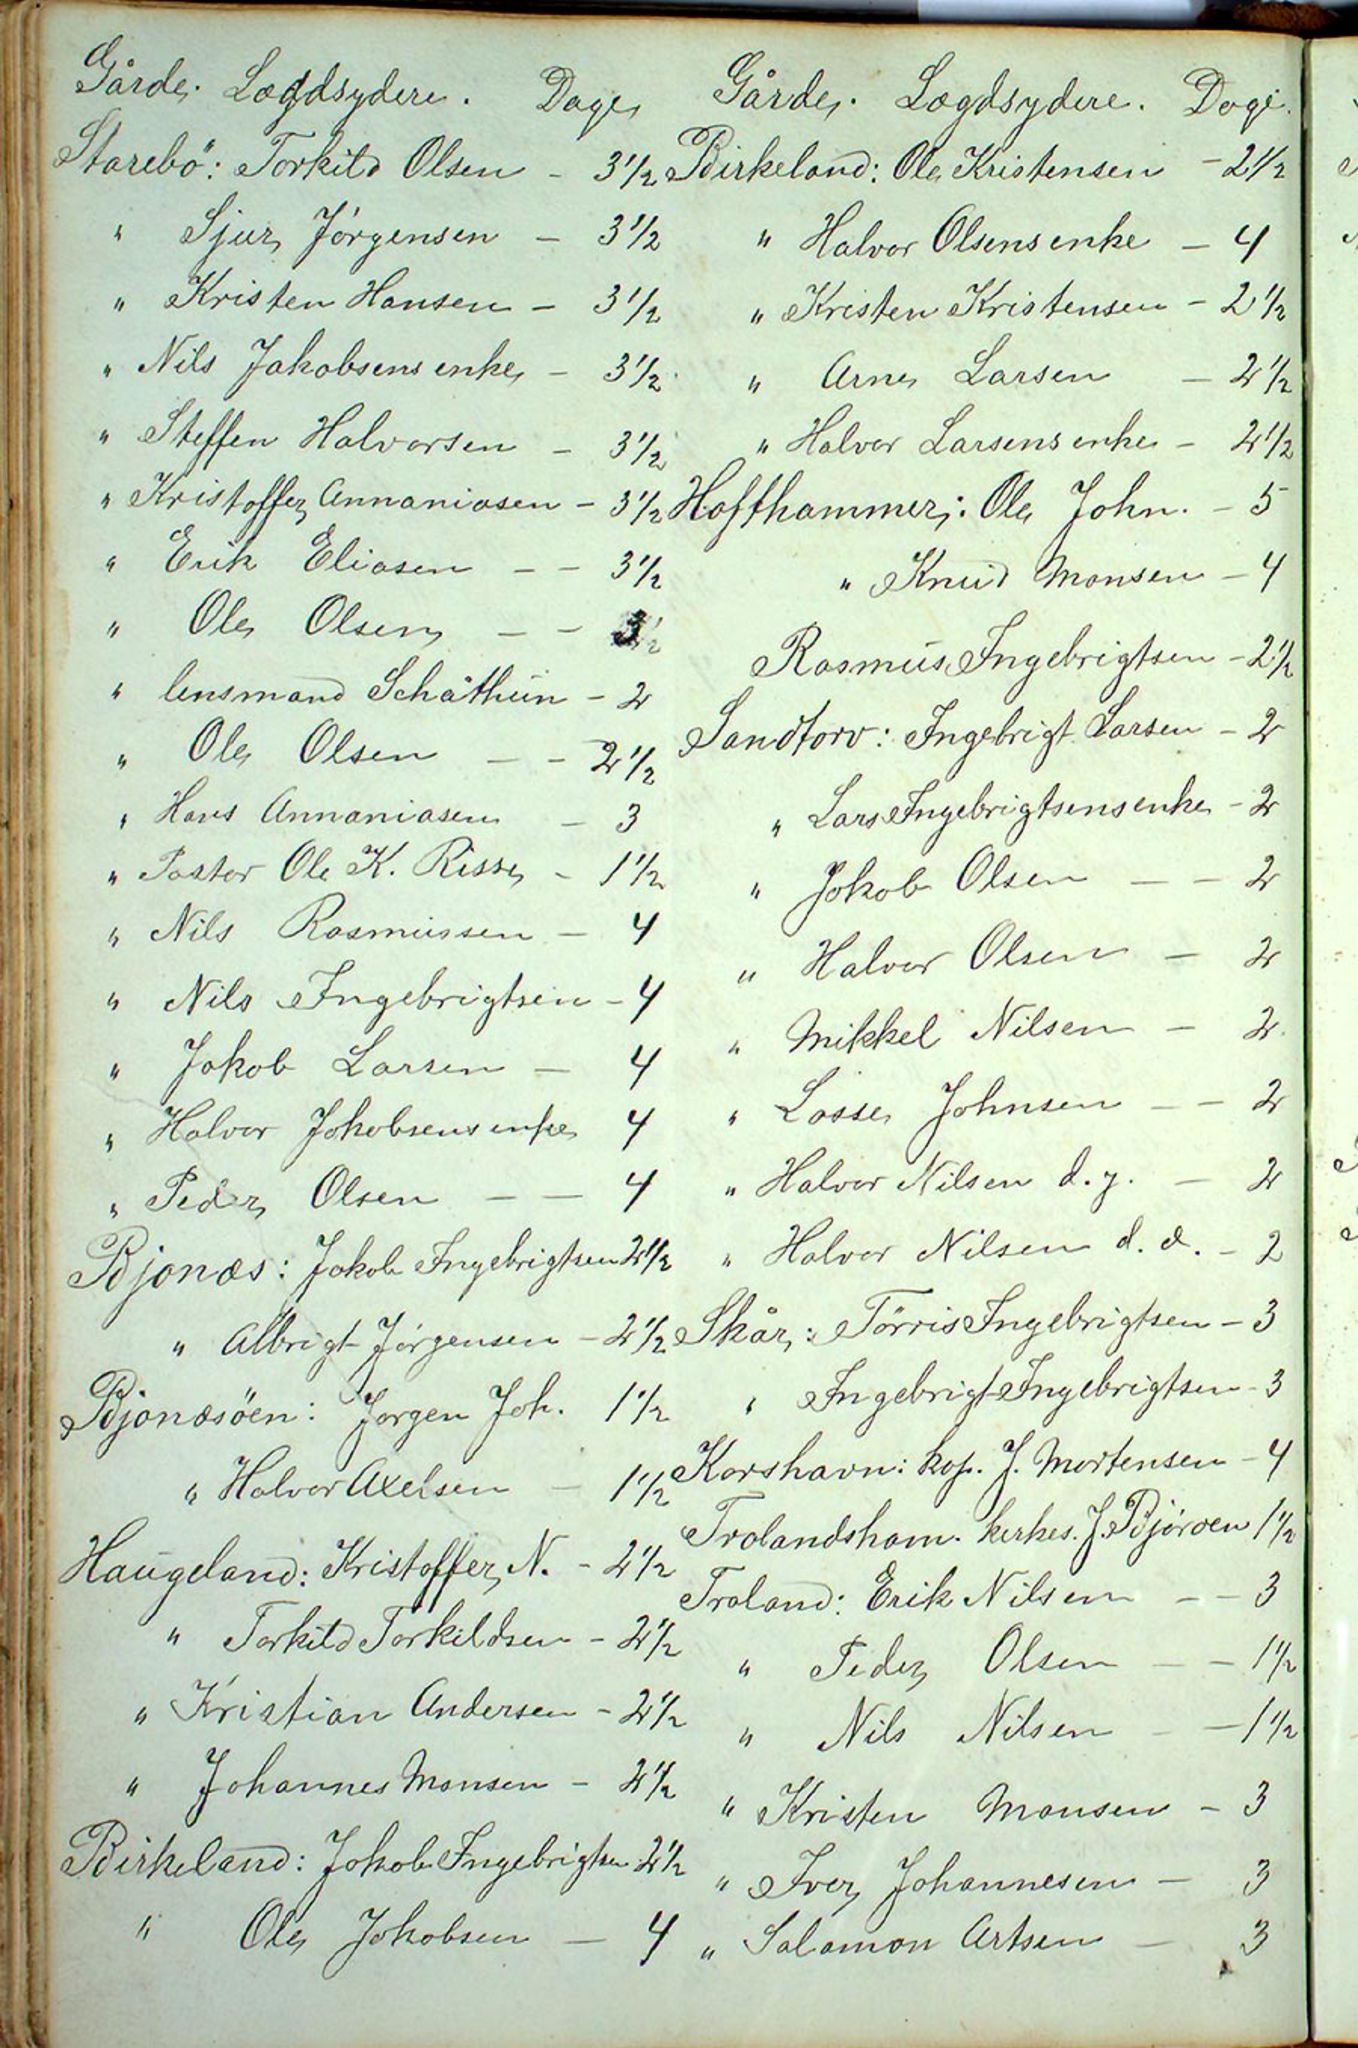 Gårde. Lægdsydere. Dage
Starebö: Torkild Olsen - 3 1/2
" Sjur Jörgensen - 3 1/2
" Kristen Hansen - 3 1/2
" Nils Jakobsens enke - 3 1/2
" Steffen Halvorsen - 3 1/2
" Kristoffer Annaniasen - 3 1/2
" Erik Eliasen - - 3 1/2
" Ole Olsen - - 3 1/2
" lensmand Schåthun - 2
" Ole Olsen - - 2 1/2
" Hans Annaniasen - 3
" Pastor Ole K. Risse - 1 1/2
" Nils Rasmussen - 4
" Nils Ingebrigtsen - 4
" Jakob Larsen - 4
" Halvor Jakobsens enke 4
" Peder Olsen - - 4
Bjonæs: Jakob Ingebrigtsen 2 1/2
" Albrigt Jörgensen - 2 1/2
Bjonæsöen: Jørgen Joh. 1 1/2
" Halvor Axelsen - 1 1/2
Haugeland: Kristoffer N. - 2 1/2
" Torkild Torkildsen - 2 1/2
" Kristian Andersen - 2 1/2
" Johannes Monsen - 2 1/2
Birkeland: Jakob Ingebrigtsen 2 1/2
" Ole Jakobsen - 4
Gårde. Lægdsydere. Dage.
Birkeland: Ole Kristensen - 2 1/2
" Halvor Olsens enke - 4
" Kristen Kristensen - 2 1/2
" Arne Larsen - 2 1/2
" Halvor Larsens enke - 2 1/2
Hoffhammer: Ole John. - 5
" Knud Monsen - 4
Rasmus Ingebrigtsen - 2 1/2
Sandtorv: Ingebrigt Larsen - 2
" Lars Ingebrigtsens enke - 2
" Jakob Olsen - - 2
" Halvor Olsen - 2
" Mikkel Nilsen - 2
" Lasse Johnsen - - 2
" Halvor Nilsen d. y. - 2
" Halvor Nilsen d. æ. - 2
Skår: Törris Ingebrigtsen - 3
" Ingebrigt Ingebrigtsen - 3
Korshavn: kop. J. Mortensen - 4
Trolandsham. kirkes. J. Björoen 1 1/2
Troland: Erik Nilsen - - 3
" Peder Olsen - - 1 1/2
" Nils Nilsen - - 1 1/2
" Kristen Monsen - 3
" Iver Johannesen - 3
" Salamon Artsen - 3